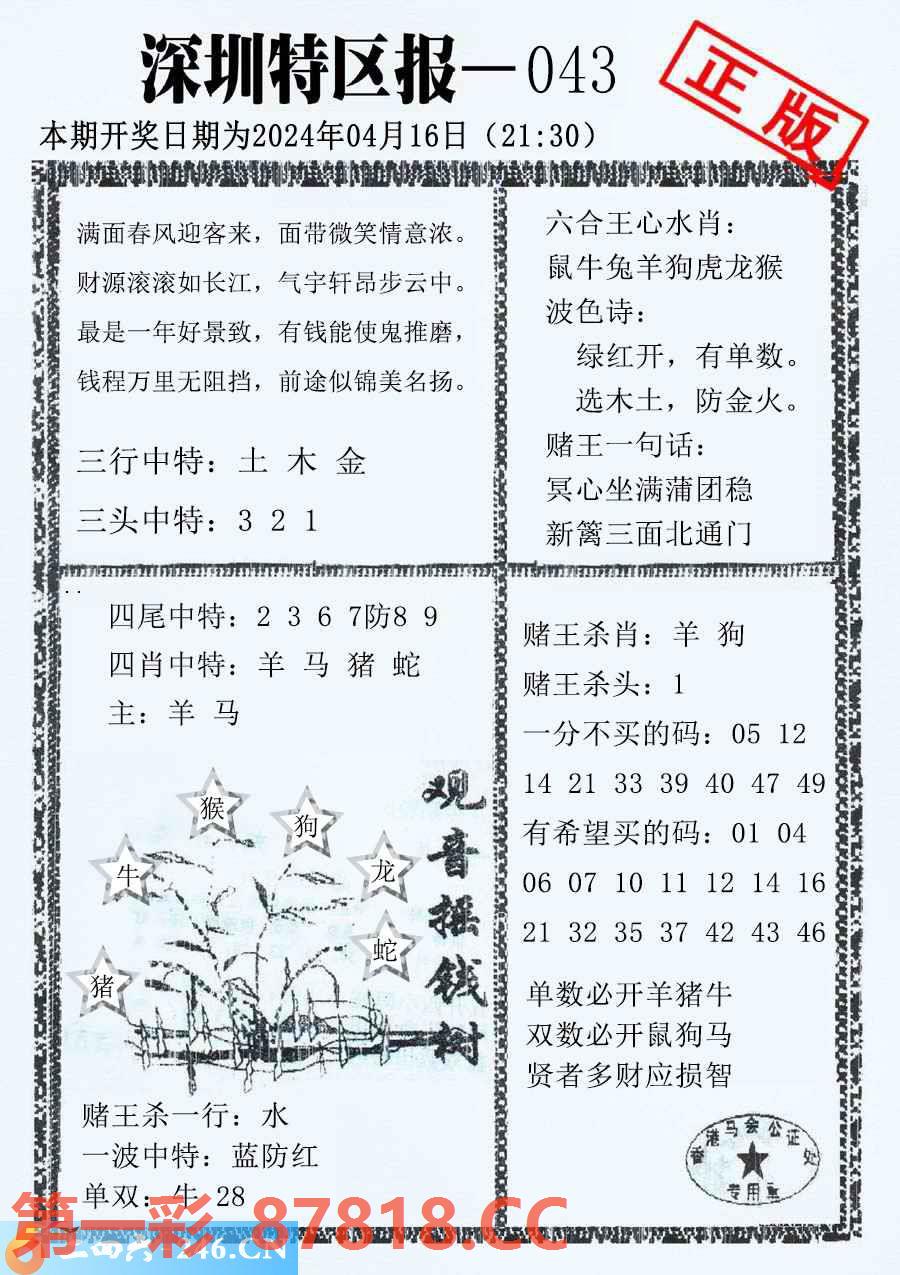 深圳特区报—043
正版
本期开奖日期为2024年04月16日（21:30）
满面春风迎客来，面带微笑情意浓。
财源滚滚如长江，气宇轩昂步云中。
最是一年好景致，有钱能使鬼推磨，
钱程万里无阻挡，前途似锦美名扬。
三行中特：土 木 金
三头中特：3 2 1
六合王心水肖：
鼠牛兔羊狗虎龙猴
波色诗：
绿红开，有单数。
选木土，防金火。
赌王一句话：
冥心坐满蒲团稳
新篱三面北通门
四尾中特：2 3 6 7防8 9
四肖中特：羊 马 猪 蛇
主：羊 马
猴
狗
牛
龙
蛇
猪
观音摇钱树
赌王杀一行：水
一波中特：蓝防红
单双：牛 28
赌王杀肖：羊 狗
赌王杀头：1
一分不买的码：05 12
14 21 33 39 40 47 49
有希望买的码：01 04
06 07 10 11 12 14 16
21 32 35 37 42 43 46
单数必开羊猪牛
双数必开鼠狗马
贤者多财应损智
香港马会公证处
专用章
第一彩 87818.CC
246.CN